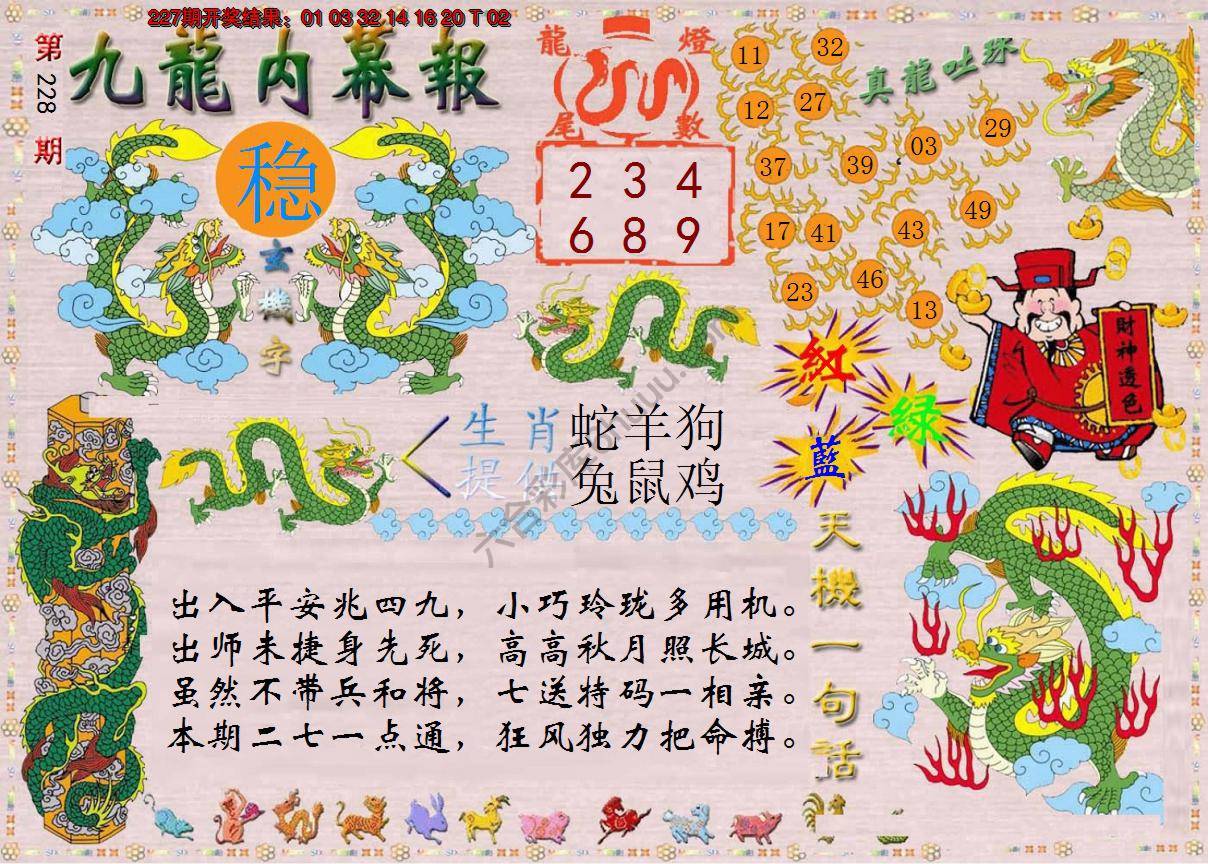 227期开奖结果：01 03 32 14 16 20 T 02
第
228
期
九龍内幕報
稳
玄
機
字
龍
燈
尾
數
2 3 4
6 8 9
真龍吐珠
11
32
12
27
37
39
03
29
17
41
43
49
23
46
13
財神透色
紅
綠
藍
生肖
提供
蛇羊狗
兔鼠鸡
天機一句話
出入平安兆四九，小巧玲珑多用机。
出师未捷身先死，高高秋月照长城。
虽然不带兵和将，七送特码一相亲。
本期二七一点通，狂风独力把命搏。